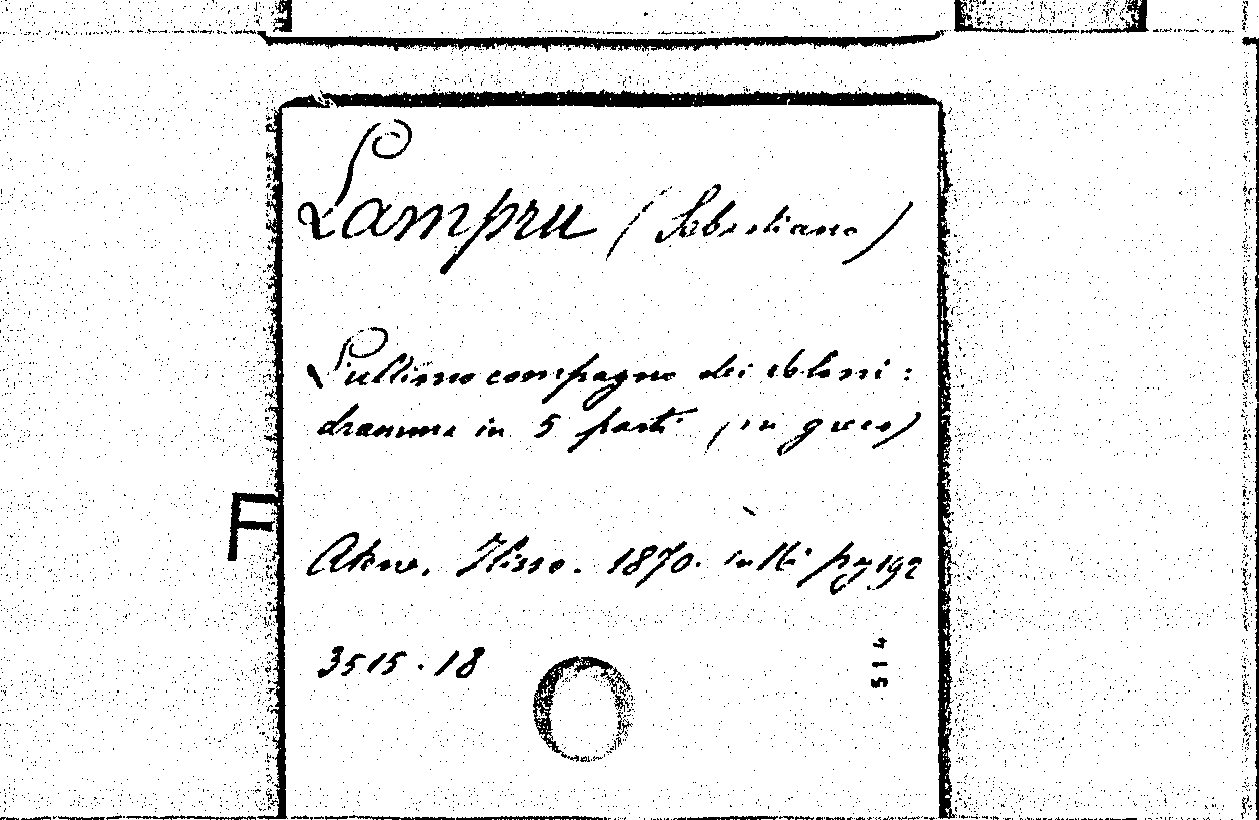 Lampru (Sebastiano)
L'ultimo compagno dei :
dramma in 5 parti (in greco)
F
Atene. Ilisso. 1870. in pag 192
3515.18
514